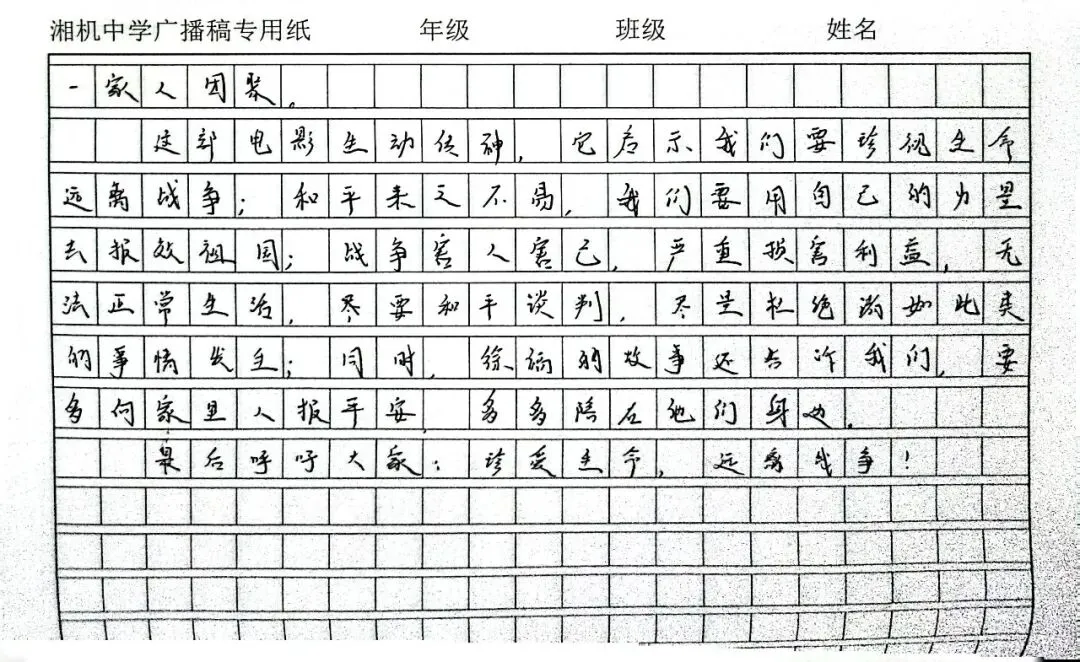 湘机中学广播稿专用纸 年级 班级 姓名
一家人团聚。
这部电影生动传神，它启示我们要珍视生命
远离战争；和平来之不易，我们要用自己的力量
去报效祖国；战争害人害己，严重损害利益，无
法正常生活，尽要和平谈判，尽量杜绝如此类
的事情发生；同时，徐福的故事还告诉我们，要
多向家里人报平安，多多陪在他们身边。
最后呼吁大家：珍爱生命，远离战争！